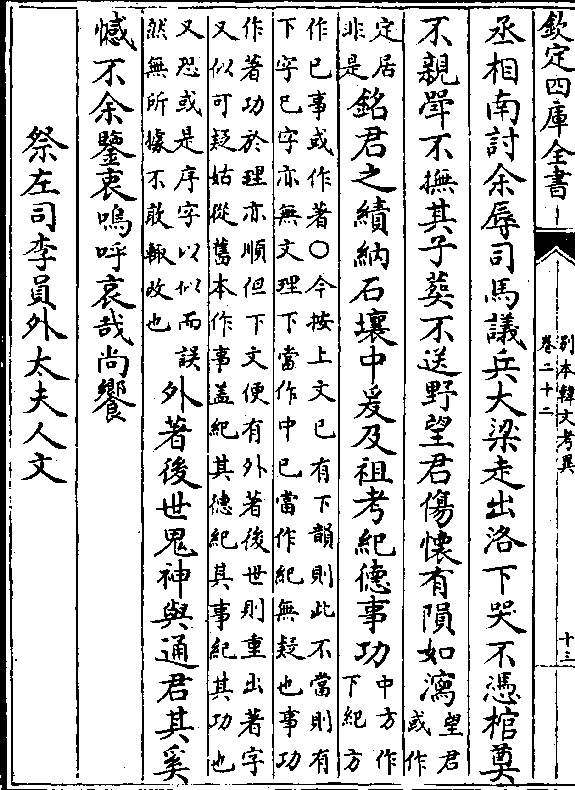 欽定四庫全書
別本韓文考異
卷二十二
十三
丞相南討余辱司馬議兵大梁走出洛下哭不憑棺奠
不親斝不撫其子葬不送野望君傷懷有隕如瀉
望君
或作
定居
非是
銘君之績納石壤中爰及祖考紀德事功
中方作
下紀方
作已事或作著○今按上文已有下韻則此不當則有
下字已字亦無文理下當作中已當作紀無疑也事功
作著功於理亦順但下文便有外著後世則重出著字
又似可疑姑從舊本作事蓋紀其德紀其事紀其功也
又恐或是序字以似而誤
然無所據不敢輒改也
外著後世鬼神與通君其奚
憾不余鑒衷嗚呼哀哉尚饗
祭左司李員外太夫人文